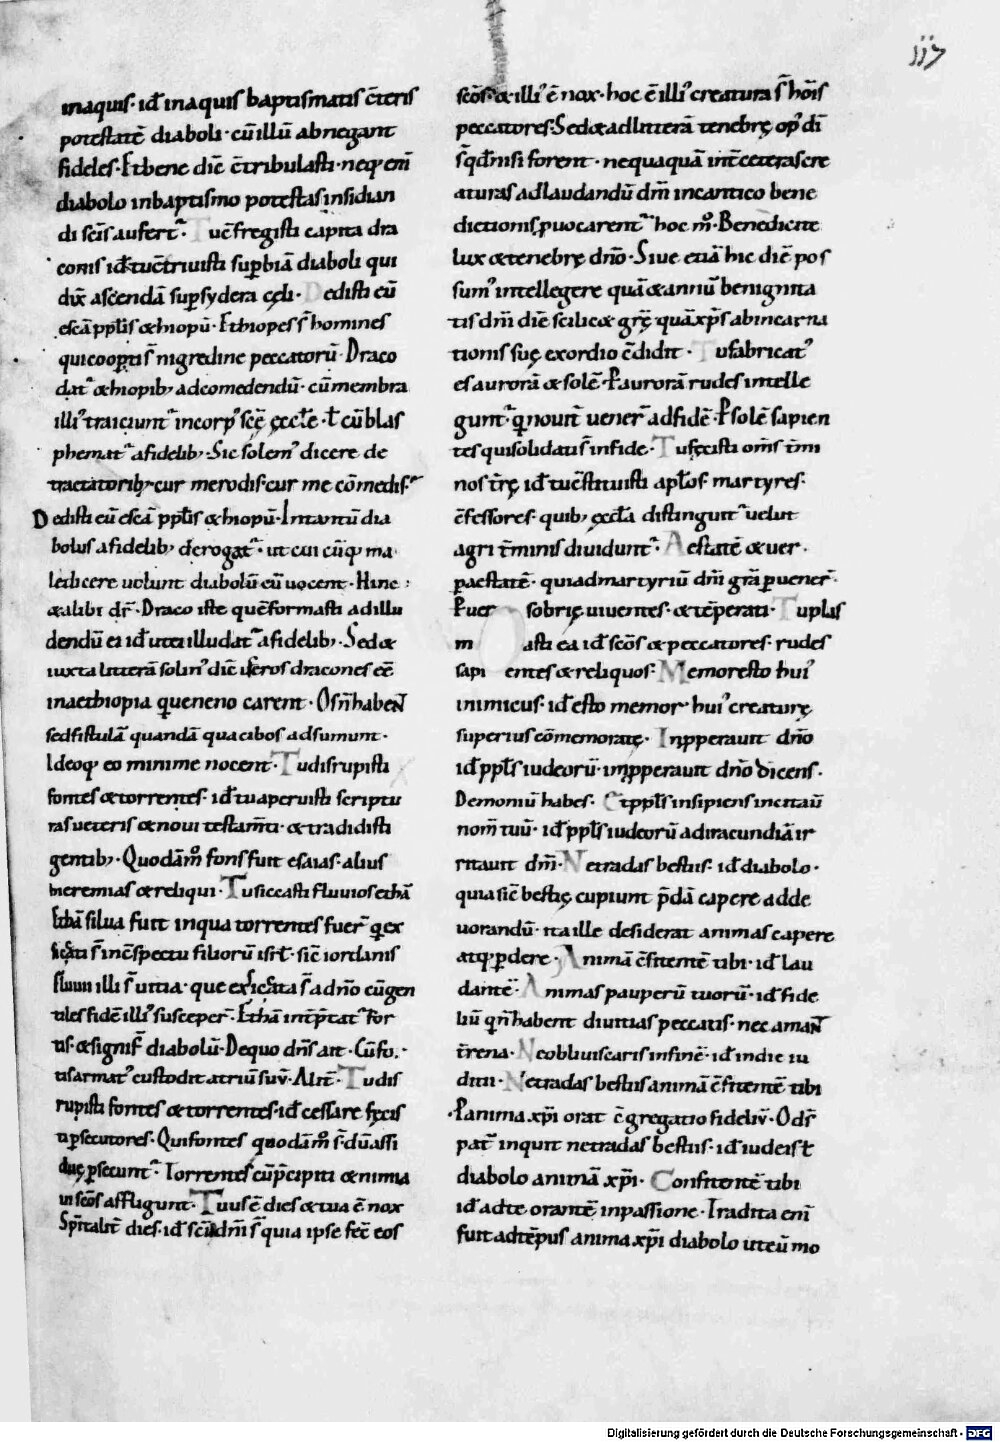 117
inaquis· id̄ inaquis baptismatis c̄teris
potestatē diaboli· cū illū abnegant
fideles· Et bene dic̄ c̄tribulasti· neq; enī
diabolo inbaptismo potestas insidian
di sc̄is aufert᷑· Tu c̄fregisti capita dra
conis id̄ tu c̄triuisti sup̱biā diaboli qui
dix̄ ascendā sup̱ sydera cęli· Dedisti eū
escā ppl̄is &hiopū· Ethiopes s̄ homines
qui coop̱ti s̄ nigredine peccatorū· Draco
dat᷑ &hiopib; ad comedendū· cū membra
illi᾽ traiciunt᷑ in corp᾽ sc̄ę ęccl̄ę· ł cū blas
phemat᷑ a fidelib;· Sic solem᾽ dicere de
tractatorib;· cur me rodis· cur me cōmedis·
Dedisti eū escā ppl̄is &hiopū· Intantū dia
bolus a fidelib; derogat᷑· ut cui cūq; ma
ledicere uolunt diabolū eū uocent· Hinc
& alibi dr̄· Draco iste quē formasti ad illu
dendū ei id̄ ut ei illudat᷑ a fidelib;· Sed &
iuxta litterā solin᾽ dic̄ ueros dracones eē
in aethiopia q̄ ueneno carent· Os n̄ habent
sed fistulā quandā qua cibos adsumunt·
Ideoq; eo minime nocent· Tu disrupisti
fontes & torrentes· id̄ tu aperuisti scriptu
ras ueteris & noui testam̄ti· & tradidisti
gentib;· Quodām᾽ fons fuit esaias· alius
hieremias & reliqui· Tu siccasti fluuios ethā
Ethā silua fuit in qua torrentes fuer̄ q̄ ex
siccati s̄ in c̄spectu filiorū isrł· sic̄ iordanis
fluuii illi s̄ uitia· que exsiccata s̄ a dn̄o cū gen
tiles fidē illi᾽ susceper̄· Ethā int̄p̄tat᷑ for
tis· & signif̄ diabolū· De quo dn̄s ait· Cū for
tis armat᾽ custodit atriū suū· Alit̄· Tu dis
rupisti fontes & torrentes· id̄ cessare fecis
ti p̱secutores· Qui fontes quodām᾽ s̄ dū assi
duę p̱secunt᷑· Torrentes cū p̄cipiti & nimia
ui sc̄os affligunt· Tuus ē dies & tua ē nox
Sp̄italit̄ dies· id̄ sc̄i dn̄i s̄ quia ipse fec̄ eos
sc̄os· & illi᾽ ē nox· hoc ē illi᾽ creatura s̄ hōīs
peccatores· Sed & ad litterā tenebrę op᾽ dī
s̄ q̄d nisi forent· nequaquā int̄ ceteras cre
aturas ad laudandū dn̄m in cantico bene
dictionis p̱uocarent᷑ hoc m᾽· Benedicite
lux & tenebrę dn̄o· Siue etiā hic dic̄ pos
sum᾽ intellegere quā & anniū benignita
tis dn̄i diē scilic& grę̄ quā xp̄s ab incarna
tionis suę exordio c̄didit· Tu fabricat᾽
es aurorā & solē· P̱ aurorā rudes intelle
gunt᷑ q̄ nouit̄ uener̄ ad fidē· P̱ solē sapien
tes qui solidati s̄ in fide· Tu fecisti om̄s t̄mi
nos t̄rę id̄ tu c̄stituisti apłos· martyres·
c̄fessores· quib; ęccła distingunt᷑ uelut
agri t̄minis diuidunt᷑· Aestatē & uer·
p̱ aestatē· qui ad martyriū dn̄i grā p̱uener̄·
P̱ uer sobrię uiuentes· & tēperati· Tu plas
masti ea id̄ sc̄os & peccatores· rudes
sapientes & reliquos· Memor esto hui᾽
inimicus· id̄ esto memor hui᾽ creaturę
superius cōmemoratę· Inp̱perauit dn̄o
id̄ ppl̄s iudeorū· imp̱perauit dn̄o dicens·
Demoniū habes· Et ppl̄s insipiens incitauit
nom̄ tuū· id̄ ppl̄s iudeorū ad iracundiā ir
ritauit dn̄m· Ne tradas bestiis· id̄ diabolo·
quia sic̄ bestię cupiunt p̄dā capere ad de
uorandū· ita ille desiderat animas capere
atq; p̱dere· Animā c̄fitentē tibi· id̄ lau
dantē· Animas pauperū tuorū· id̄ fide
liū q̄ n̄ habent diuitias peccatis· nec amant
t̄rena· Ne obliuiscaris in finē· id̄ in die iu
dicii· Ne tradas bestiis animā c̄fitentē tibi
P̱ anima xp̄i orat c̄gregatio fideliū· O ds̄
pat̄ inquit ne tradas bestiis· id̄ iudeis ł
diabolo animā xp̄i· Confitentē tibi
id̄ ad te orantē in passione· Tradita eni᷑
fuit ad tēpus anima xp̄i diabolo ut eū mo
Digitalisierung gefördert durch die Deutsche Forschungsgemeinschaft - DFG